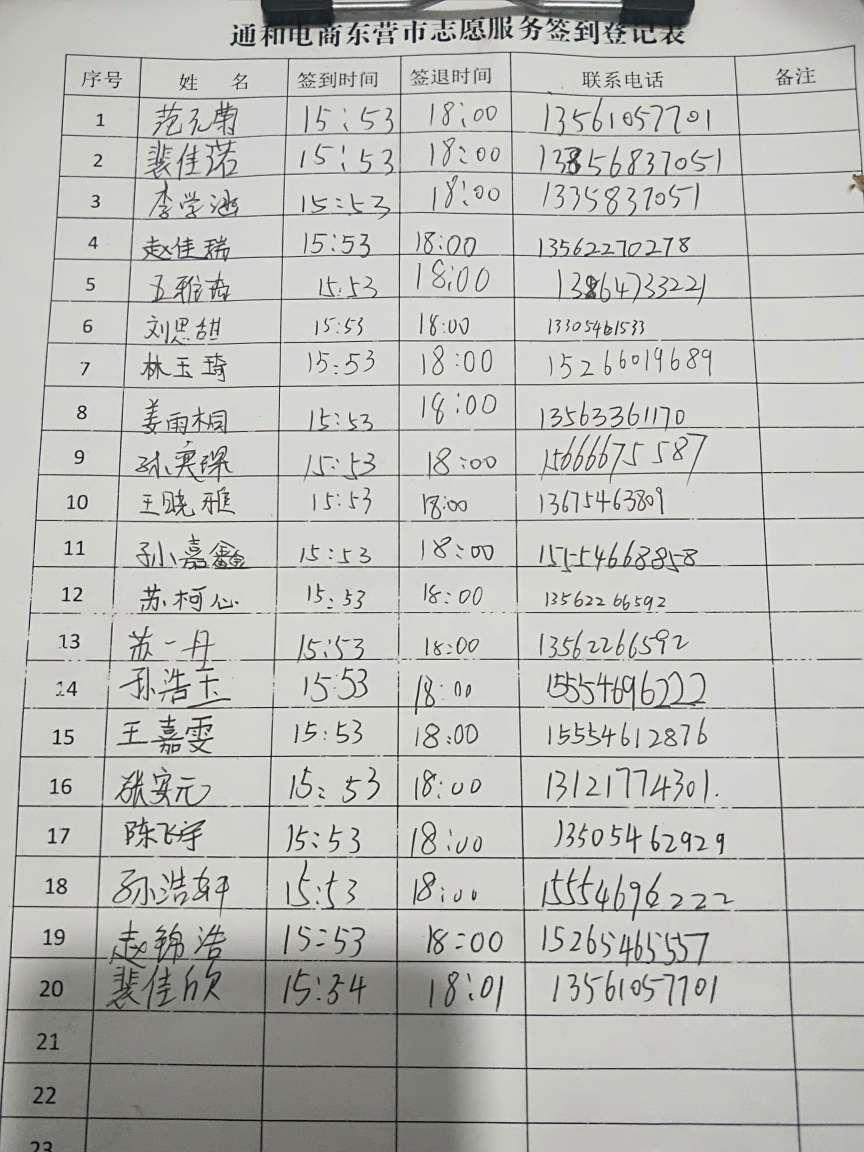 通和电商东营市志愿服务签到登记表
序号 姓 名 签到时间 签退时间 联系电话 备注
1 范元菊 15:53 18:00 13561057701
2 裴佳诺 15:53 18:00 13856837051
3 李学涵 15:53 18:00 1335837051
4 赵佳瑞 15:53 18:00 13562270278
5 王雅洁 15:53 18:00 13864733221
6 刘思甜 15:53 18:00 13305461533
7 林玉琦 15:53 18:00 15266019689
8 姜雨桐 15:53 18:00 13563361170
9 孙奕琛 15:53 18:00 15666675587
10 王晓雅 15:53 18:00 13675463809
11 孙嘉鑫 15:53 18:00 15554668858
12 苏柯心 15:53 18:00 13562266592
13 苏一丹 15:53 18:00 13562266592
14 孙浩玉 15:53 18:00 15554696222
15 王嘉雯 15:53 18:00 15554612876
16 张安元 15:53 18:00 13121774301.
17 陈飞宇 15:53 18:00 13505462929
18 孙浩轩 15:53 18:00 15554696222
19 赵锦浩 15:53 18:00 15265465557
20 裴佳欣 15:54 18:01 13561057701
21
22
23